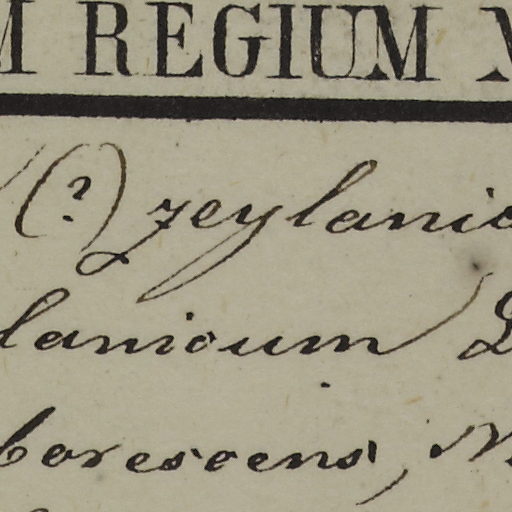 M REGIUM
(?) zeylanic
lanicum
borescens,